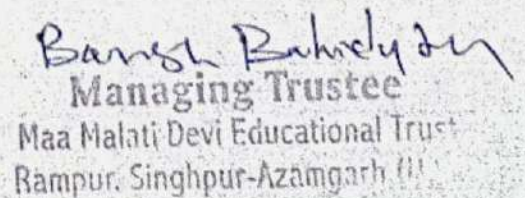 Managing Trustee
Maa Malati Devi Educational Trust
Rampur, Singhpur-Azamgarh (U